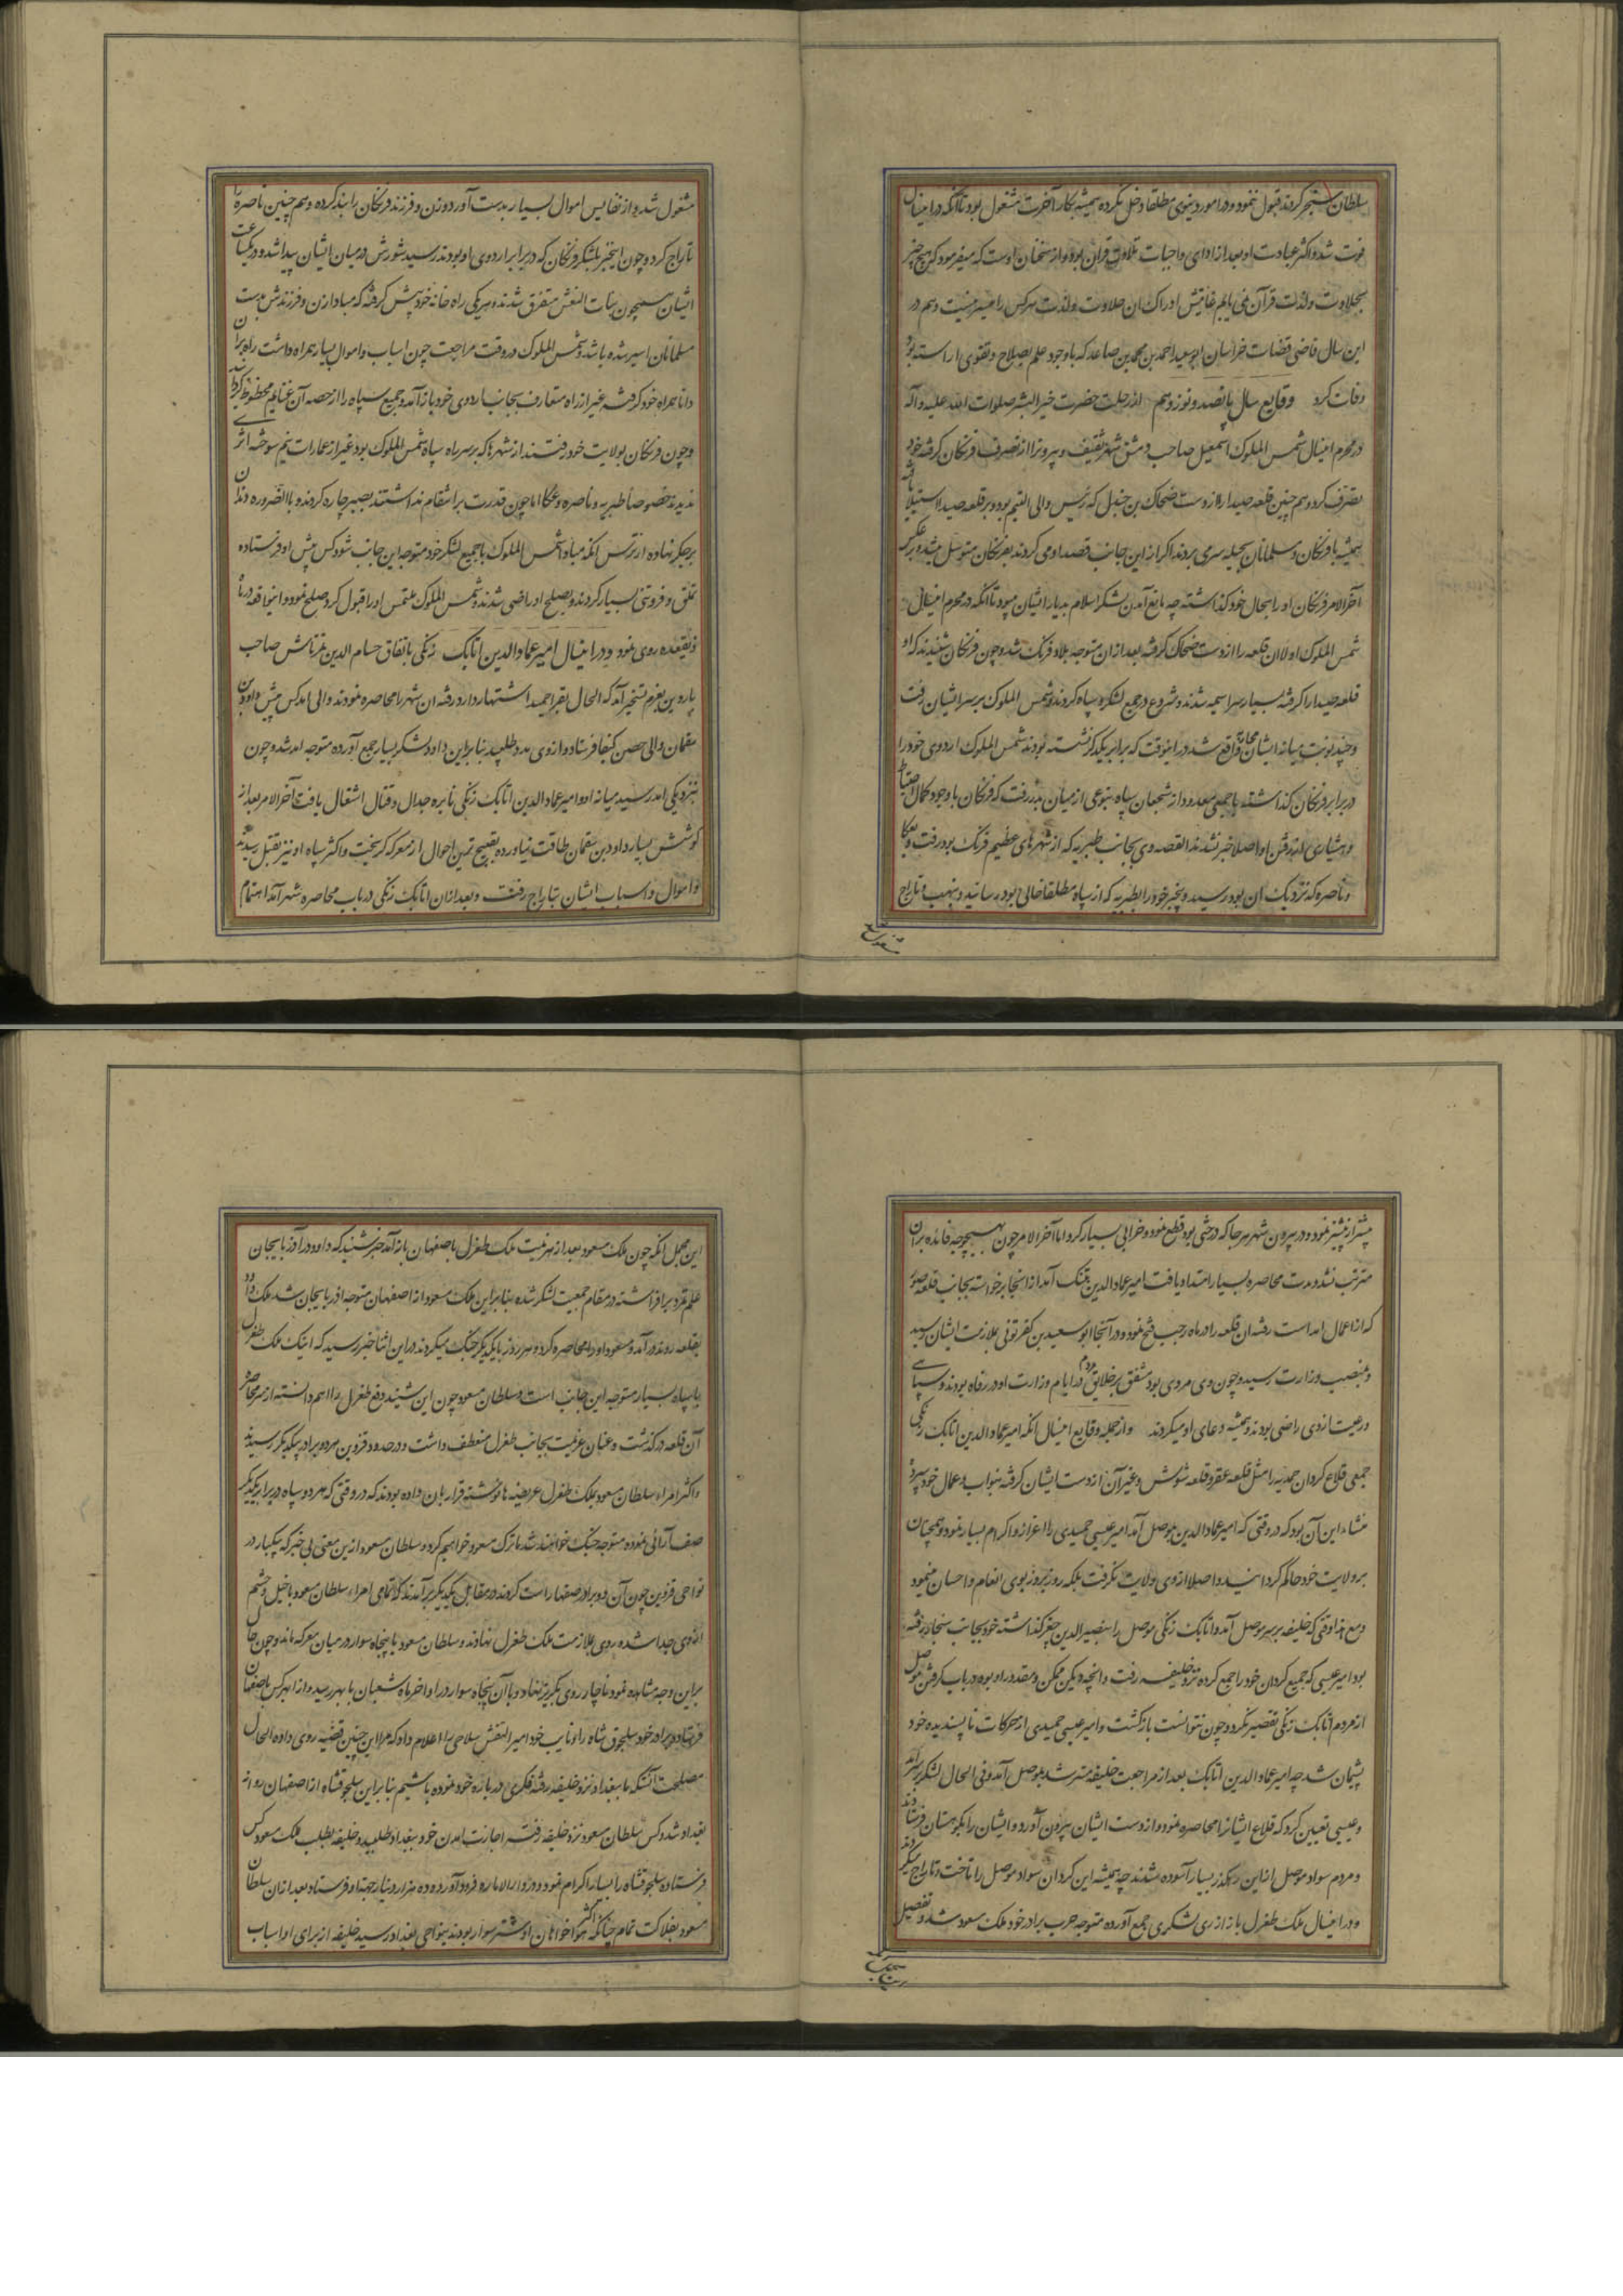 سلطان سنجر کردند قبول ننمود و در امور دنیوی مطلقا دخل نکرده همیشه بکار آخرت مشغول بود تا آنکه در امسال
فوت شد و اکثر عبادت او بعد از ادای واجبات تلاوت قران بود و از سخنان اوست که میفرمود که هیچ چیز
بحلاوت ولذت قرآن نمی یابم غایتش ادراک ان حلاوت ولذت هرکس را میسر نیست و هم در
این سال قاضی قضات خراسان ابوسعید احمد بن محمد بن صاعد که باوجود علم بصلاح و تقوی اراسته بود
وفات کرد وقایع سال پانصد و نوزدهم از رحلت حضرت خیر البشر صلوات الله علیه وآله
در محرم امسال شمس الملوک اسمعیل صاحب دمشق شهر شقیف و بیروت را از تصرف فرنکان کرفته خود
تصرف کرد و هم چنین قلعه صیدا را از دست ضحاک بن جندل که رئیس والی التیم بود و بر قلعه صیدا استیلا یافته
همیشه با فرنکان و مسلمانان بحیله سر می برد اکر از این جانب قصد او می کردند بفرنکان متوسل میشد و بر عکس
آخر الامر فرنکان او را بحال خود کذاشته چه مانع آمدن لشکر اسلام بدیار ایشان میبود تا انکه در محرم امسال
شمس الملوک اولا ان قلعه را از دست ضحاک کرفته بعد از ان متوجه بلاد فرنک شد و چون فرنکان شنیدند که او
قلعه صیدا را کرفته بسیار سراسیمه شدند و شروع در جمع لشکر و سپاه کردند و شمس الملوک بر سر ایشان رفت
و چند نوبت میانه ایشان محاربه واقع شد در اینوقت که برابر یکدکر نشسته بودند شمس الملوک اردوی خود را
در برابر فرنکان کذاشته با جمعی معدود از شجعان سپاه بنوعی از میان بدر رفت که فرنکان با وجود کمال احتیاط
و هشیاری از رفتن او اصلا خبر نشدند القصه وی بجانب طبریه که از شهرهای عظیم فرنک بود رفت و بعکا
و ناصره که نزدیک ان بود رسید و بیخبر خود را بطبریه که از سپاه مطلقا خالی بود رسانید و بنهب و تاراج
مشغول شد
مشغول شد و از نفایس اموال بسیار بدست آورد و زن و فرزند فرنکان را بند کرده و هم چنین ناصره را
تاراج کرد و چون اینخبر بلشکر فرنکان که در برابر اردوی او بودند رسید شورش در میان ایشان پیدا شد و در یکساعت
ایشان همچون بنات النعش متفرق شدند و هر یکی راه خانه خود پیش کرفته که مبادا زن و فرزندش بدست
مسلمانان اسیر شده باشد و شمس الملوک در وقت مراجعت چون اسباب و اموال بسیار همراه داشت راه بران
دانا همراه خود کرفته غیر از راه متعارف بجانب اردوی خود باز آمد و جمیع سپاه را از حصه آن غنایم محظوظ کردانید
و چون فرنکان بولایت خود رفتند از شهرها که بر سر راه سپاه شمس الملوک بود غیر از عمارات نیم سوخته اثری
ندیدند خصوصا طبریه و ناصره و عکا اما چون قدرت بر انتقام نداشتند بصبر چاره کردند و بالضروره دندان
بر جکر نهاده از ترس انکه مبادا شمس الملوک با جمیع لشکر خود متوجه این جانب شود کس پیش او فرستاده
تملق و فروتنی بسیار کردند و بصلح او راضی شدند و شمس الملوک ملتمس او را قبول کرد صلح نمود و این واقعه در ماه
ذیقعده روی نمود و در امسال امیر عماد الدین اتابک زنکی باتفاق حسام الدین تمرتاش صاحب
ماردین بعزم تسخیر آمد که الحال بقرا حمید اشتهار دارد رفته ان شهر را محاصره نمودند و والی امد کس پیش داود بن
سقمان والی حصن کیفا فرستاد و از وی مدد طلبید بنا بر این داود لشکر بسیار جمع آورده متوجه امد شد و چون
بنزدیکی امد رسید میانه او و امیر عماد الدین اتابک زنکی نایره جدال و قتال اشتعال یافت آخر الامر بعد از
کوشش بسیار داود بن سقمان طاقت نیاورده بقبیح ترین احوال از معرکه کریخت و اکثر سپاه او نیز بقتل رسیدند
و اموال و اسباب ایشان بتاراج رفت و بعد از ان اتابک زنکی در باب محاصره شهر آمد اهتمام
بیشتر از پیشتر نمود و در بیرون شهر هر جا که درختی بود قطع نمود و خرابی بسیار کرد اما آخر الامر چون بهیچوجه فائده بران
مترتب نشد و مدت محاصره بسیار امتداد یافت امیر عماد الدین بتنک آمد از انجا برخواسته بجانب قلعه صور
که از اعمال امد است رفته ان قلعه را در ماه رجب فتح نمود و در آنجا ابوسعید بن کفرتوثی بملازمت ایشان رسید
و بمنصب وزارت رسید و چون وی مردی بود مشفق بر خلایق مردم در ایام وزارت او در رفاه بودند و سپاهی
و رعیت از وی راضی بودند و همیشه دعای او میکردند و از جمله وقایع امسال انکه امیر عماد الدین اتابک زنکی
جمعی قلاع کردان حمدیه را مثل قلعه عقر و قلعه شوش و غیر آن از دست ایشان کرفته بنواب و عمال خود سپرد
منشاء این آن بود که در وقتی که امیر عماد الدین بموصل آمد امیر عیسی حمیدی را اعزاز و اکرام بسیار نمود و همچنان
بر ولایت خود حاکم کردانید و اصلا از وی ولایت نکرفت بلکه روز بروز بوی انعام و احسان مینمود
و مع هذا وقتی که خلیفه بر سر موصل آمد و اتابک زنکی موصل را بنصیر الدین چقر کذاشته خود بجانب سنجار رفته
بود امیر عیسی که جمیع کردان خود را جمع کرده نزد خلیفه رفت و انچه دیکن ممکن و مقدور او بود در باب کرفتن موصل
از مردم اتابک زنکی تقصیر نکرد و چون نتوانست بازکشت و امیر عیسی حمیدی از حرکات ناپسندیده خود
پشیمان شد چه امیر عماد الدین اتابک بعد از مراجعت خلیفه مسترشد بموصل آمد و فی الحال لشکر بر سر امیر
و عیسی تعیین کرد که قلاع ایشانرا محاصره نمود و از دست ایشان بیرون آورد و ایشان را بکوهستان فرستادند
و مردم سواد موصل از این رهکذر بسیار آسوده شدند چه همیشه این کردان سواد موصل را تاخت و تاراج میکردند
و در امسال ملک طغرل باز از ری لشکری جمع آورده متوجه حرب برادر خود ملک مسعود شد و تفصیل
این مجمل انکه چون ملک مسعود بعد از هزیمت ملک طغرل باصفهان باز آمد خبر شنید که داود در آذربایجان
علم تمرد بر افراشته در مقام جمعیت لشکر شده بنا بر این ملک مسعود از اصفهان متوجه اذربایجان شد ملک داود
بقلعه روند در آمد و مسعود او را محاصره کرد و هر روز با یکدیکر جنک میکردند در این اثنا خبر رسید که اینک ملک طغرل
با سپاه بسیار متوجه این جانب است و سلطان مسعود چون این شنید دفع طغرل را اهم دانسته از سر محاصره
آن قلعه در کذشت و عنان عزیمت بجانب طغرل منعطف داشت و در حدود قزوین هر دو برادر بیکدیکر رسیدند
و اکثر امراء سلطان مسعود بملک طغرل عریضه ها نوشته قرار بان داده بودند که در وقتی که هر دو سپاه در برابر یکدیکر
صف آرائی نموده متوجه جنک خواهند شد ما ترک مسعود خواهیم کرد و سلطان مسعود ازین معنی بی خبر که یکبار در
نواحی قزوین چون آن دو برادر صفها راست کردند در مقابل یکدیکر بر آمدند که تمامی امراء سلطان مسعود با خیل و حشم
از وی جدا شده روی بملازمت ملک طغرل نهادند و سلطان مسعود با پنجاه سوار در میان معرکه ماند و چون حال
براین وجه مشاهده نمود ناچار روی بکریز نهاد و با آن پنجاه سوار در اواخر ماه شعبان بابهر رسید و از ابهر کس باصفهان
فرستاد و برادر خود سلجوق شاه را و نایب خود امیر البقش سلاحی را اعلام داد که مرا این چنین قضیه روی داده الحال
مصلحت آنستکه ما ببغداد نزد خلیفه رفته فکری در باره خود نموده باشیم بنا براین سلجوقشاه از اصفهان روانه
بغداد شد و کس سلطان مسعود نزد خلیفه رفته اجازت امدن خود ببغداد طلبید و خلیفه بطلب ملک مسعود کس
فرستاده سلجوقشاه را بسیار اکرام نمود و در دار الاماره فرود آورده ده هزار دینار جهة او فرستاد بعد از ان سلطان
مسعود بفلاکت تمام چنانکه اکثر هوا خواهان او شتر سوار بودند بنواحی بغداد رسید خلیفه از برای او اسباب